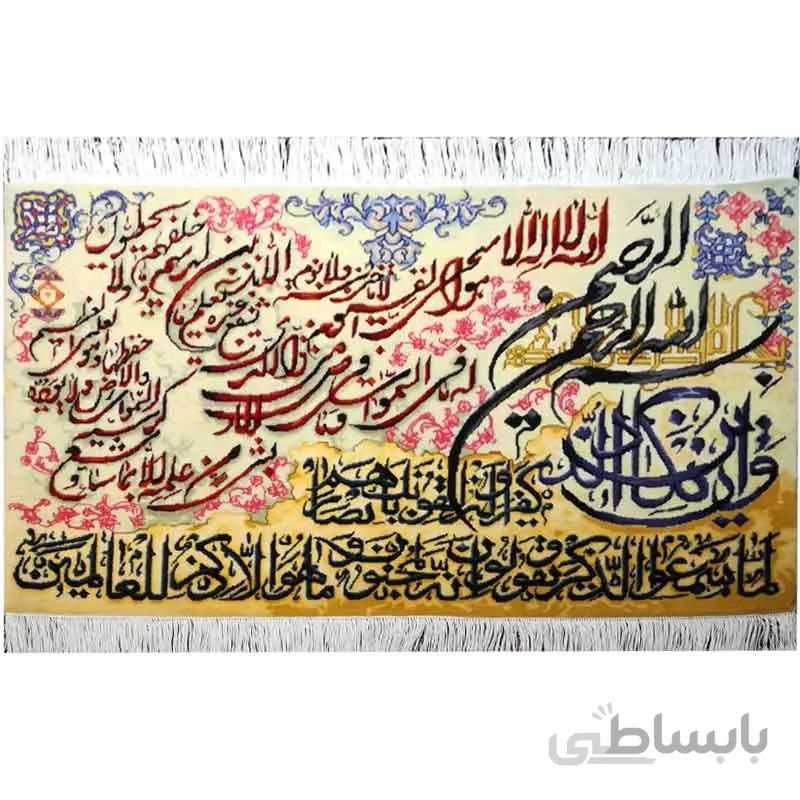 بسم الله الرحمن الرحیم
الله لا اله الا هو الحی القیوم
لا تاخذه سنة ولا نوم
له ما فی السموات و ما فی الارض من ذا الذی یشفع عنده الا باذنه
یعلم ما بین ایدیهم و ما خلفهم ولا یحیطون
بشیء من علمه الا بما شاء وسع کرسیه السموات والارض ولا یؤده حفظهما و هو العلی العظیم
و ان یکاد الذین
کفروا لیزلقونک بابصارهم
لما سمعوا الذکر و یقولون انه لمجنون و ما هو الا ذکر للعالمین
بابساطی